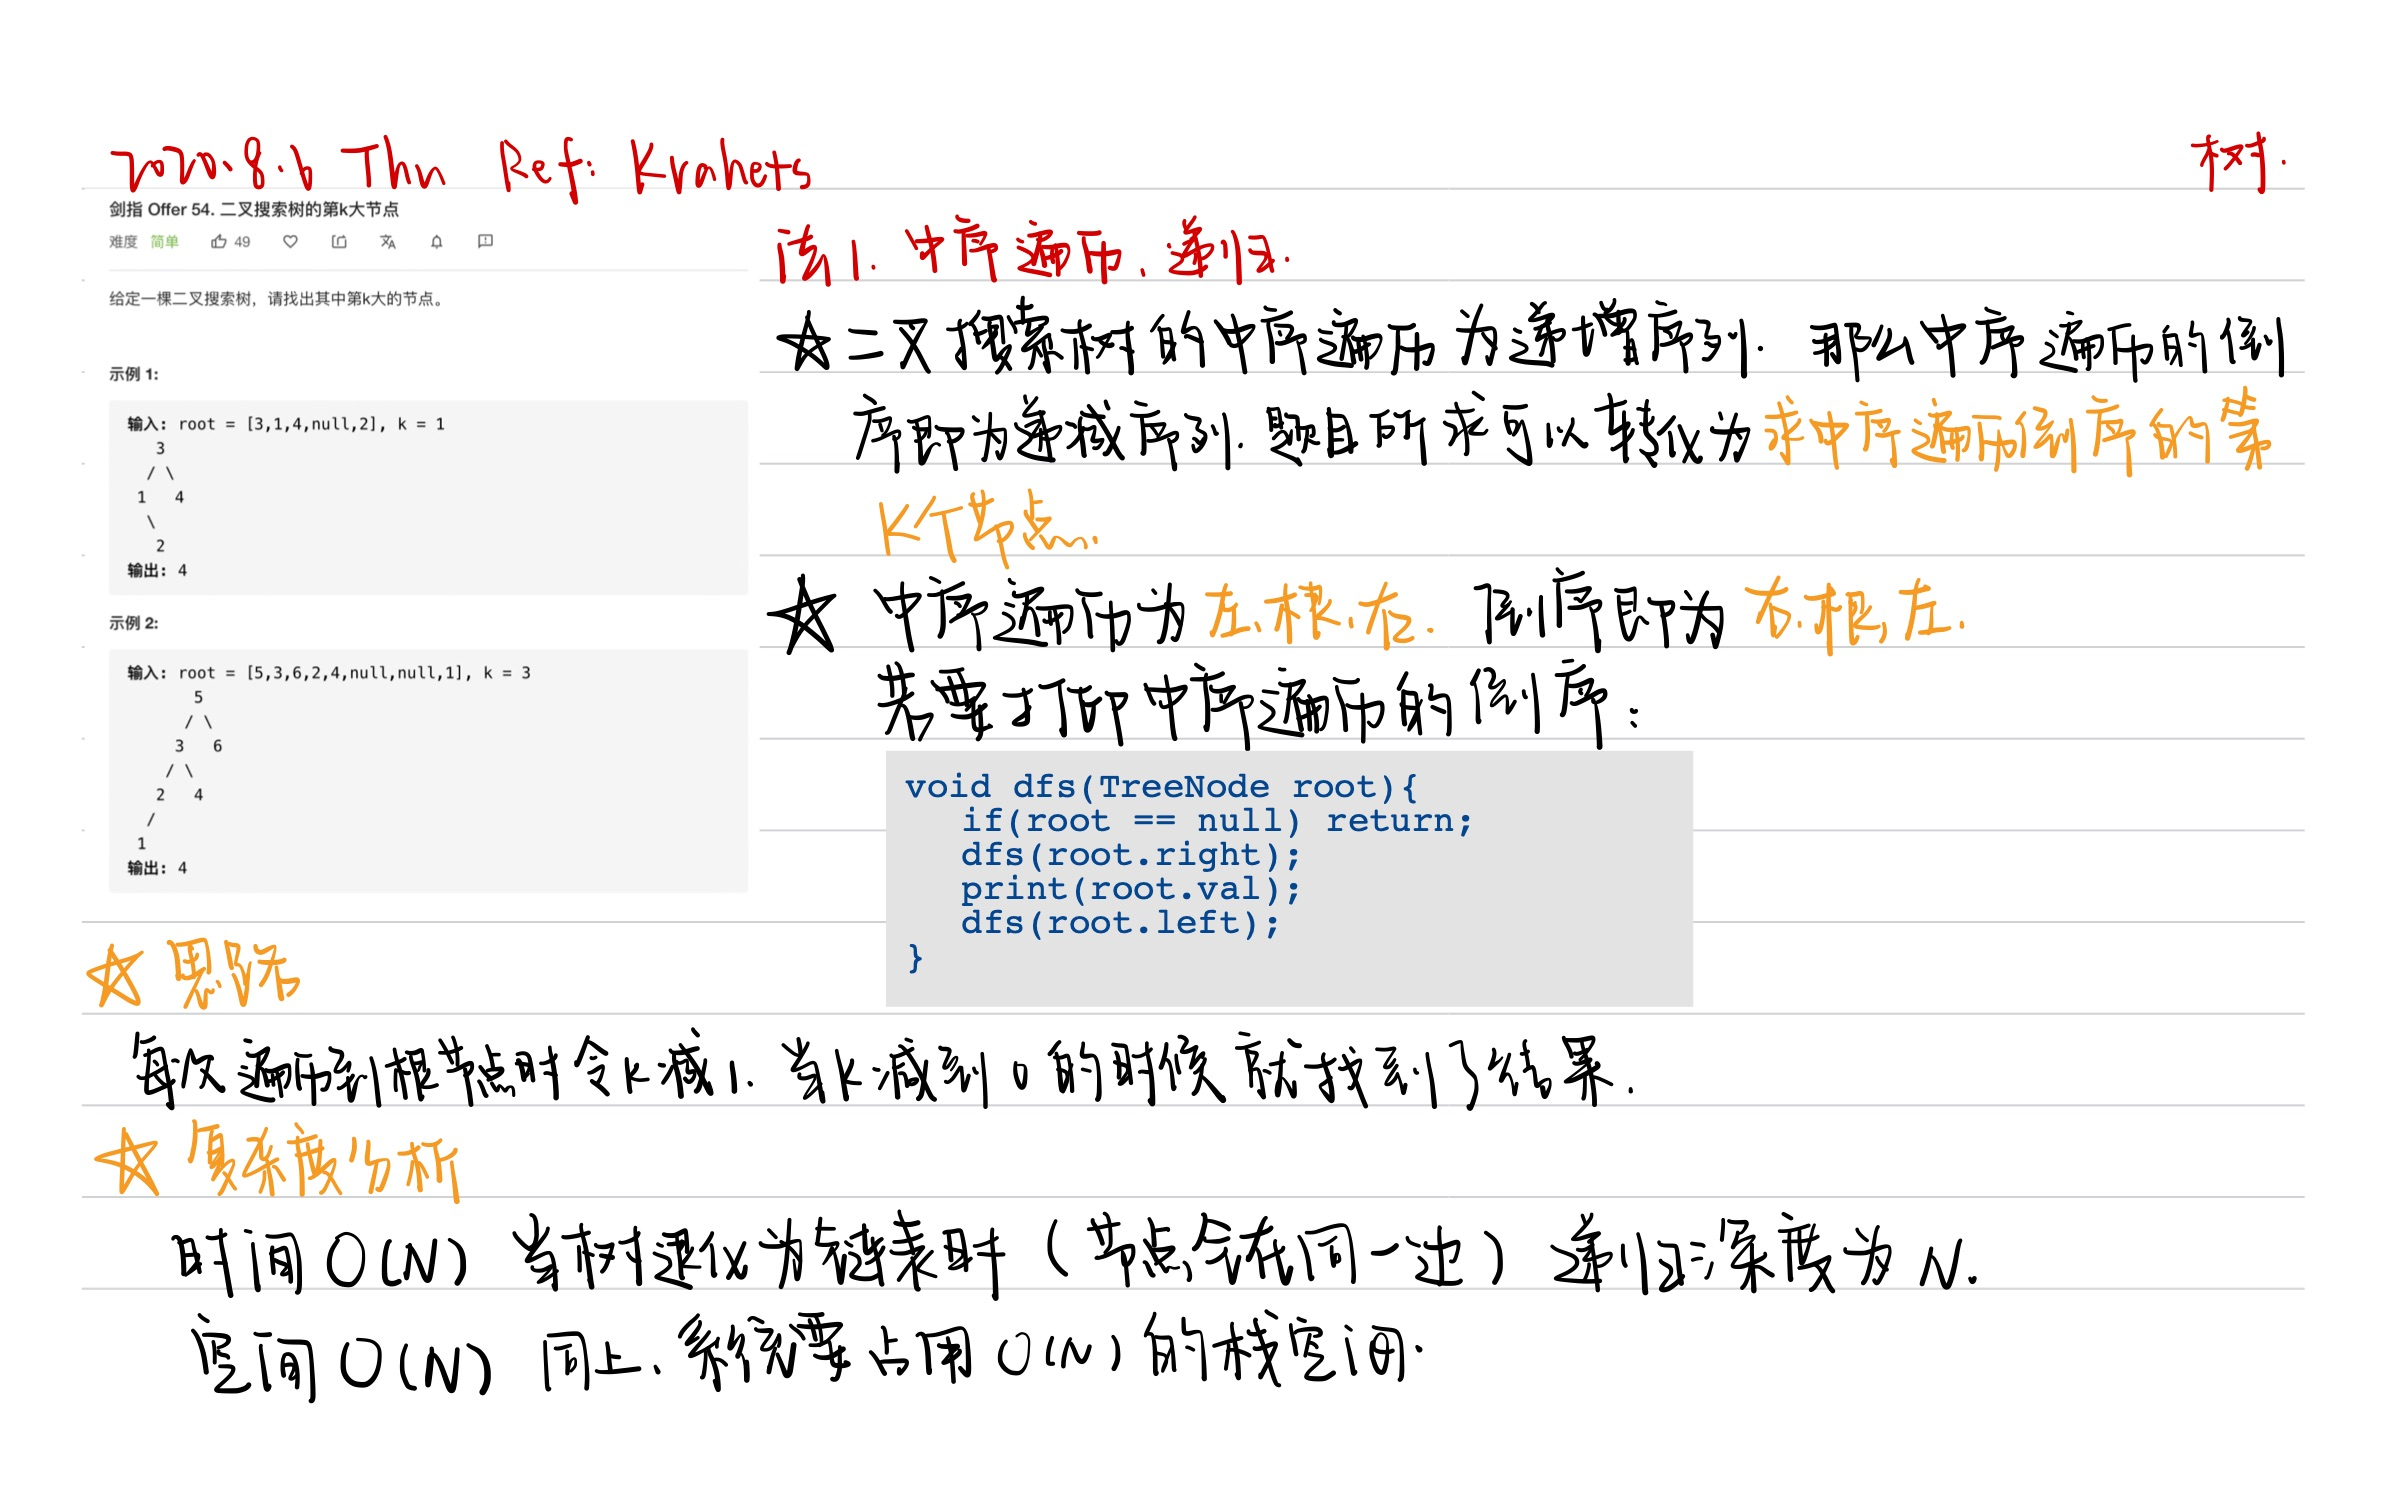 2020.8.6 Thu Ref: Krahets
树.
剑指 Offer 54. 二叉搜索树的第k大节点
难度 简单 49
给定一棵二叉搜索树，请找出其中第k大的节点。
示例 1:
输入: root = [3,1,4,null,2], k = 1
3
/ \
1 4
\
2
输出: 4
示例 2:
输入: root = [5,3,6,2,4,null,null,1], k = 3
5
/ \
3 6
/ \
2 4
/
1
输出: 4
法1. 中序遍历、递归.
☆二叉搜索树的中序遍历为递增序列. 那么中序遍历的倒
序即为递减序列. 题目所求可以转化为求中序遍历倒序的第
K个节点.
☆ 中序遍历为左、根、右. 倒序即为右、根、左.
若要打印中序遍历的倒序:
void dfs(TreeNode root){
if(root == null) return;
dfs(root.right);
print(root.val);
dfs(root.left);
}
☆思路
每次遍历到根节点时令k减1. 当k减到0的时候就找到了结果.
☆复杂度分析
时间O(N) 当树退化为链表时（节点全在同一边）递归深度为N.
空间O(N) 同上、系统要占用O(N)的栈空间.